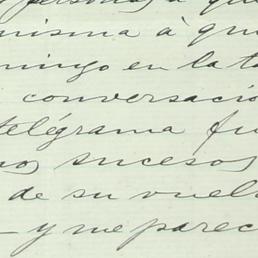 persona, à qu
misma à qu
mingo en la ta
conversació
telégrama fu
nos sucesos
de su vuel
- y me parec